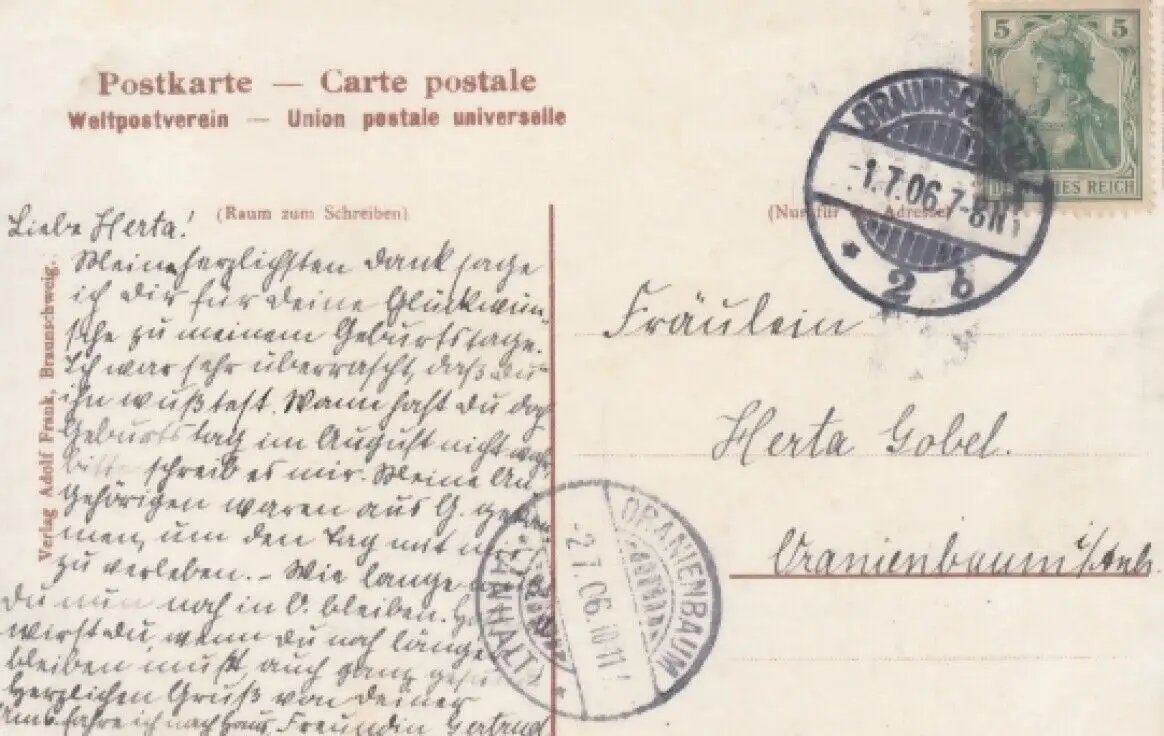 Postkarte — Carte postale
Weltpostverein — Union postale universelle
5 5
DEUTSCHES REICH
BRAUNSCHWEIG
-1.7.06.7-8N
* 2 b
(Raum zum Schreiben)
(Nur für die Adresse)
Verlag Adolf Frank, Braunschweig.
Liebe Herta!
Meine herzlichsten Dank sage
ich dir für deine Glückwün-
sche zu meinem Geburtstage.
Ich war sehr überrascht, daß du
ihn wußtest. Wann hast du do
Geburtstag im August nicht
bitte schreib es mir. Meine An
gehörigen waren aus G. gekom
men, um den Tag mit mir
zu verleben. - Wie lange
du nun noch in O. bleiben.
wirst du, wenn du noch länge
bleiben mußt, auch ganz
Herzlichen Gruß von deiner
fahre ich nach Haus. Freundin Gertrud
Fräulein
Herta Gobel.
Oranienbaum i/Anh.
ORANIENBAUM
-2.7.06.10 11
(ANHALT)